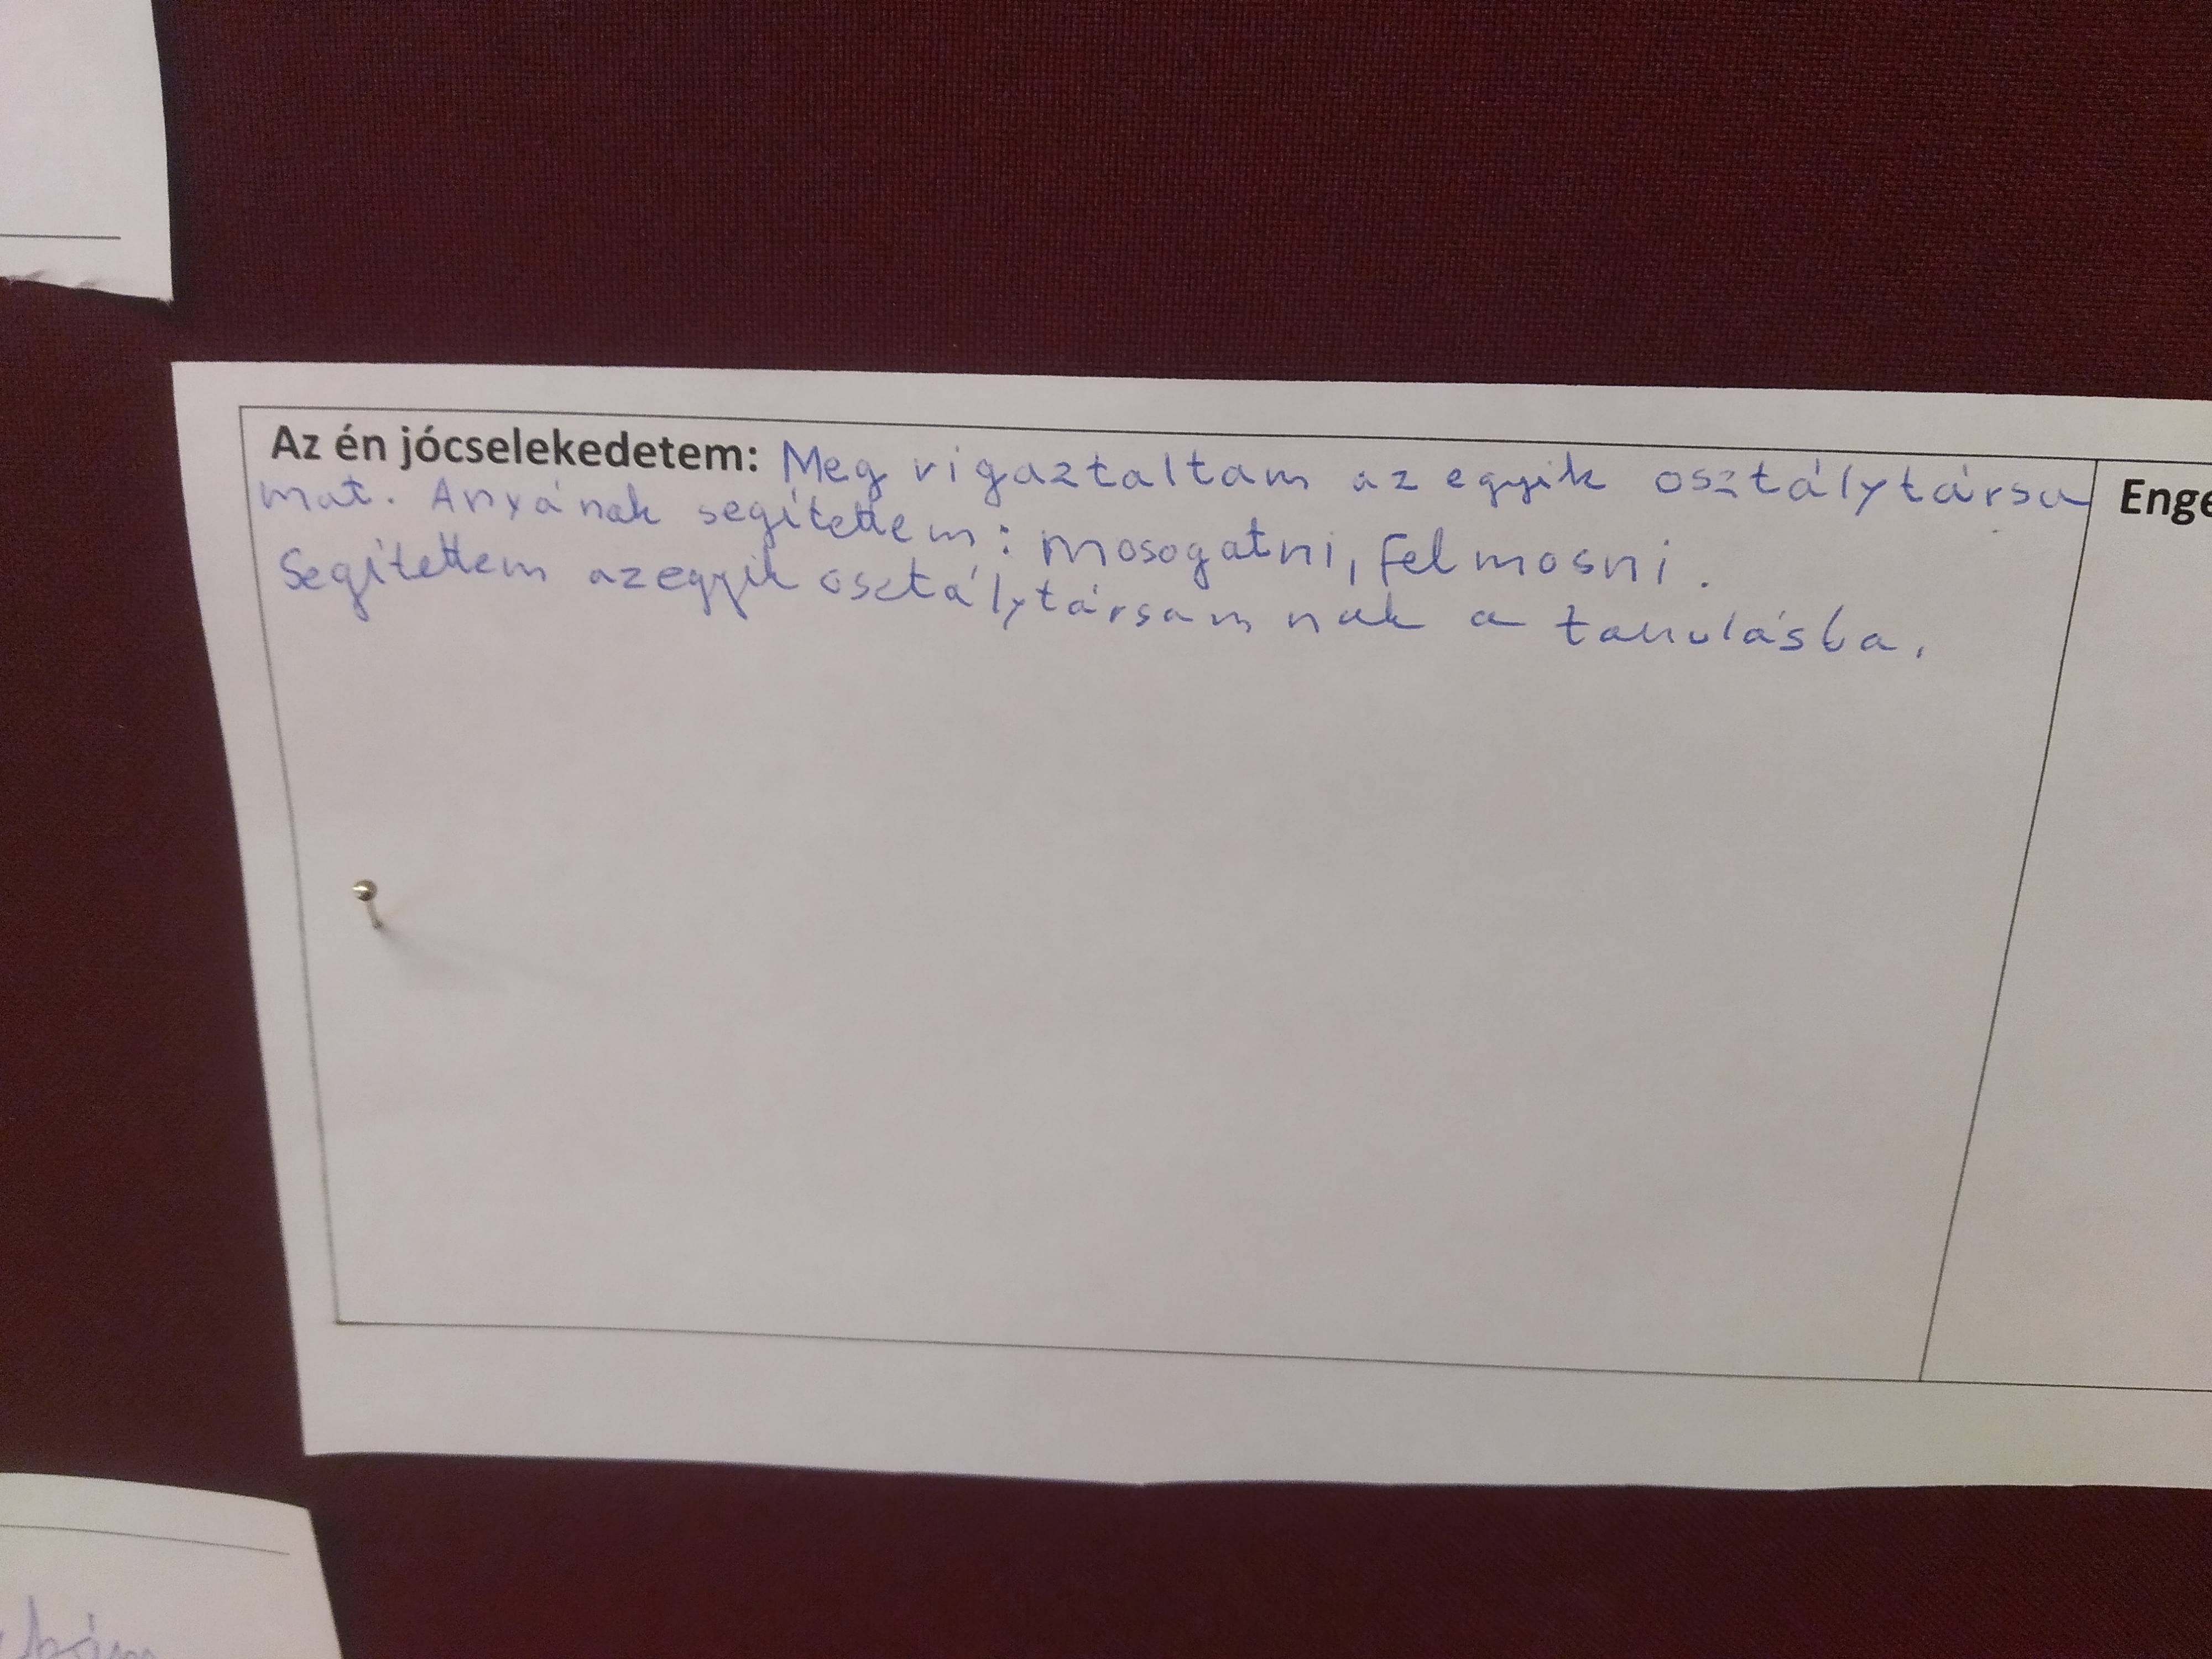 Az én jócselekedetem: Meg vigaztaltam az egyik osztálytársa
mat. Anyának segítettem: mosogatni, fel mosni.
Segítettem azegyik osztálytársam nak a tanulásba.
Enge